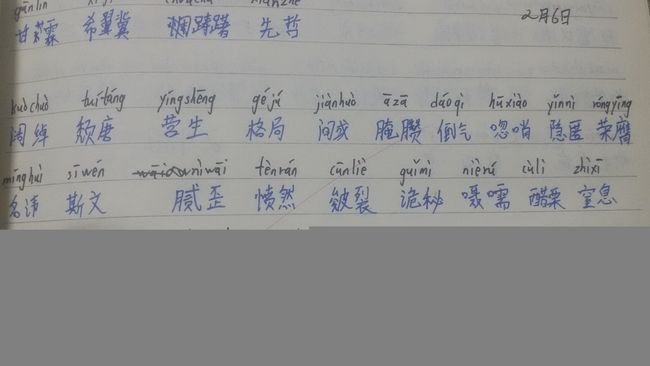 2月6日
甘霖 希冀 踌躇 先哲
kuòchuò tuítáng yíngshēng géjú jiànhuò āzā dáoqì hūxiào yǐnnì róngyīng
阔绰 颓唐 营生 格局 间或 腌臜 倒气 唿哨 隐匿 荣膺
mínghuì sīwén nìwāi fènrán cūnliè guǐmì nièrú cùlì zhìxī
名讳 斯文 腻歪 愤然 皴裂 诡秘 嗫嚅 醋栗 窒息